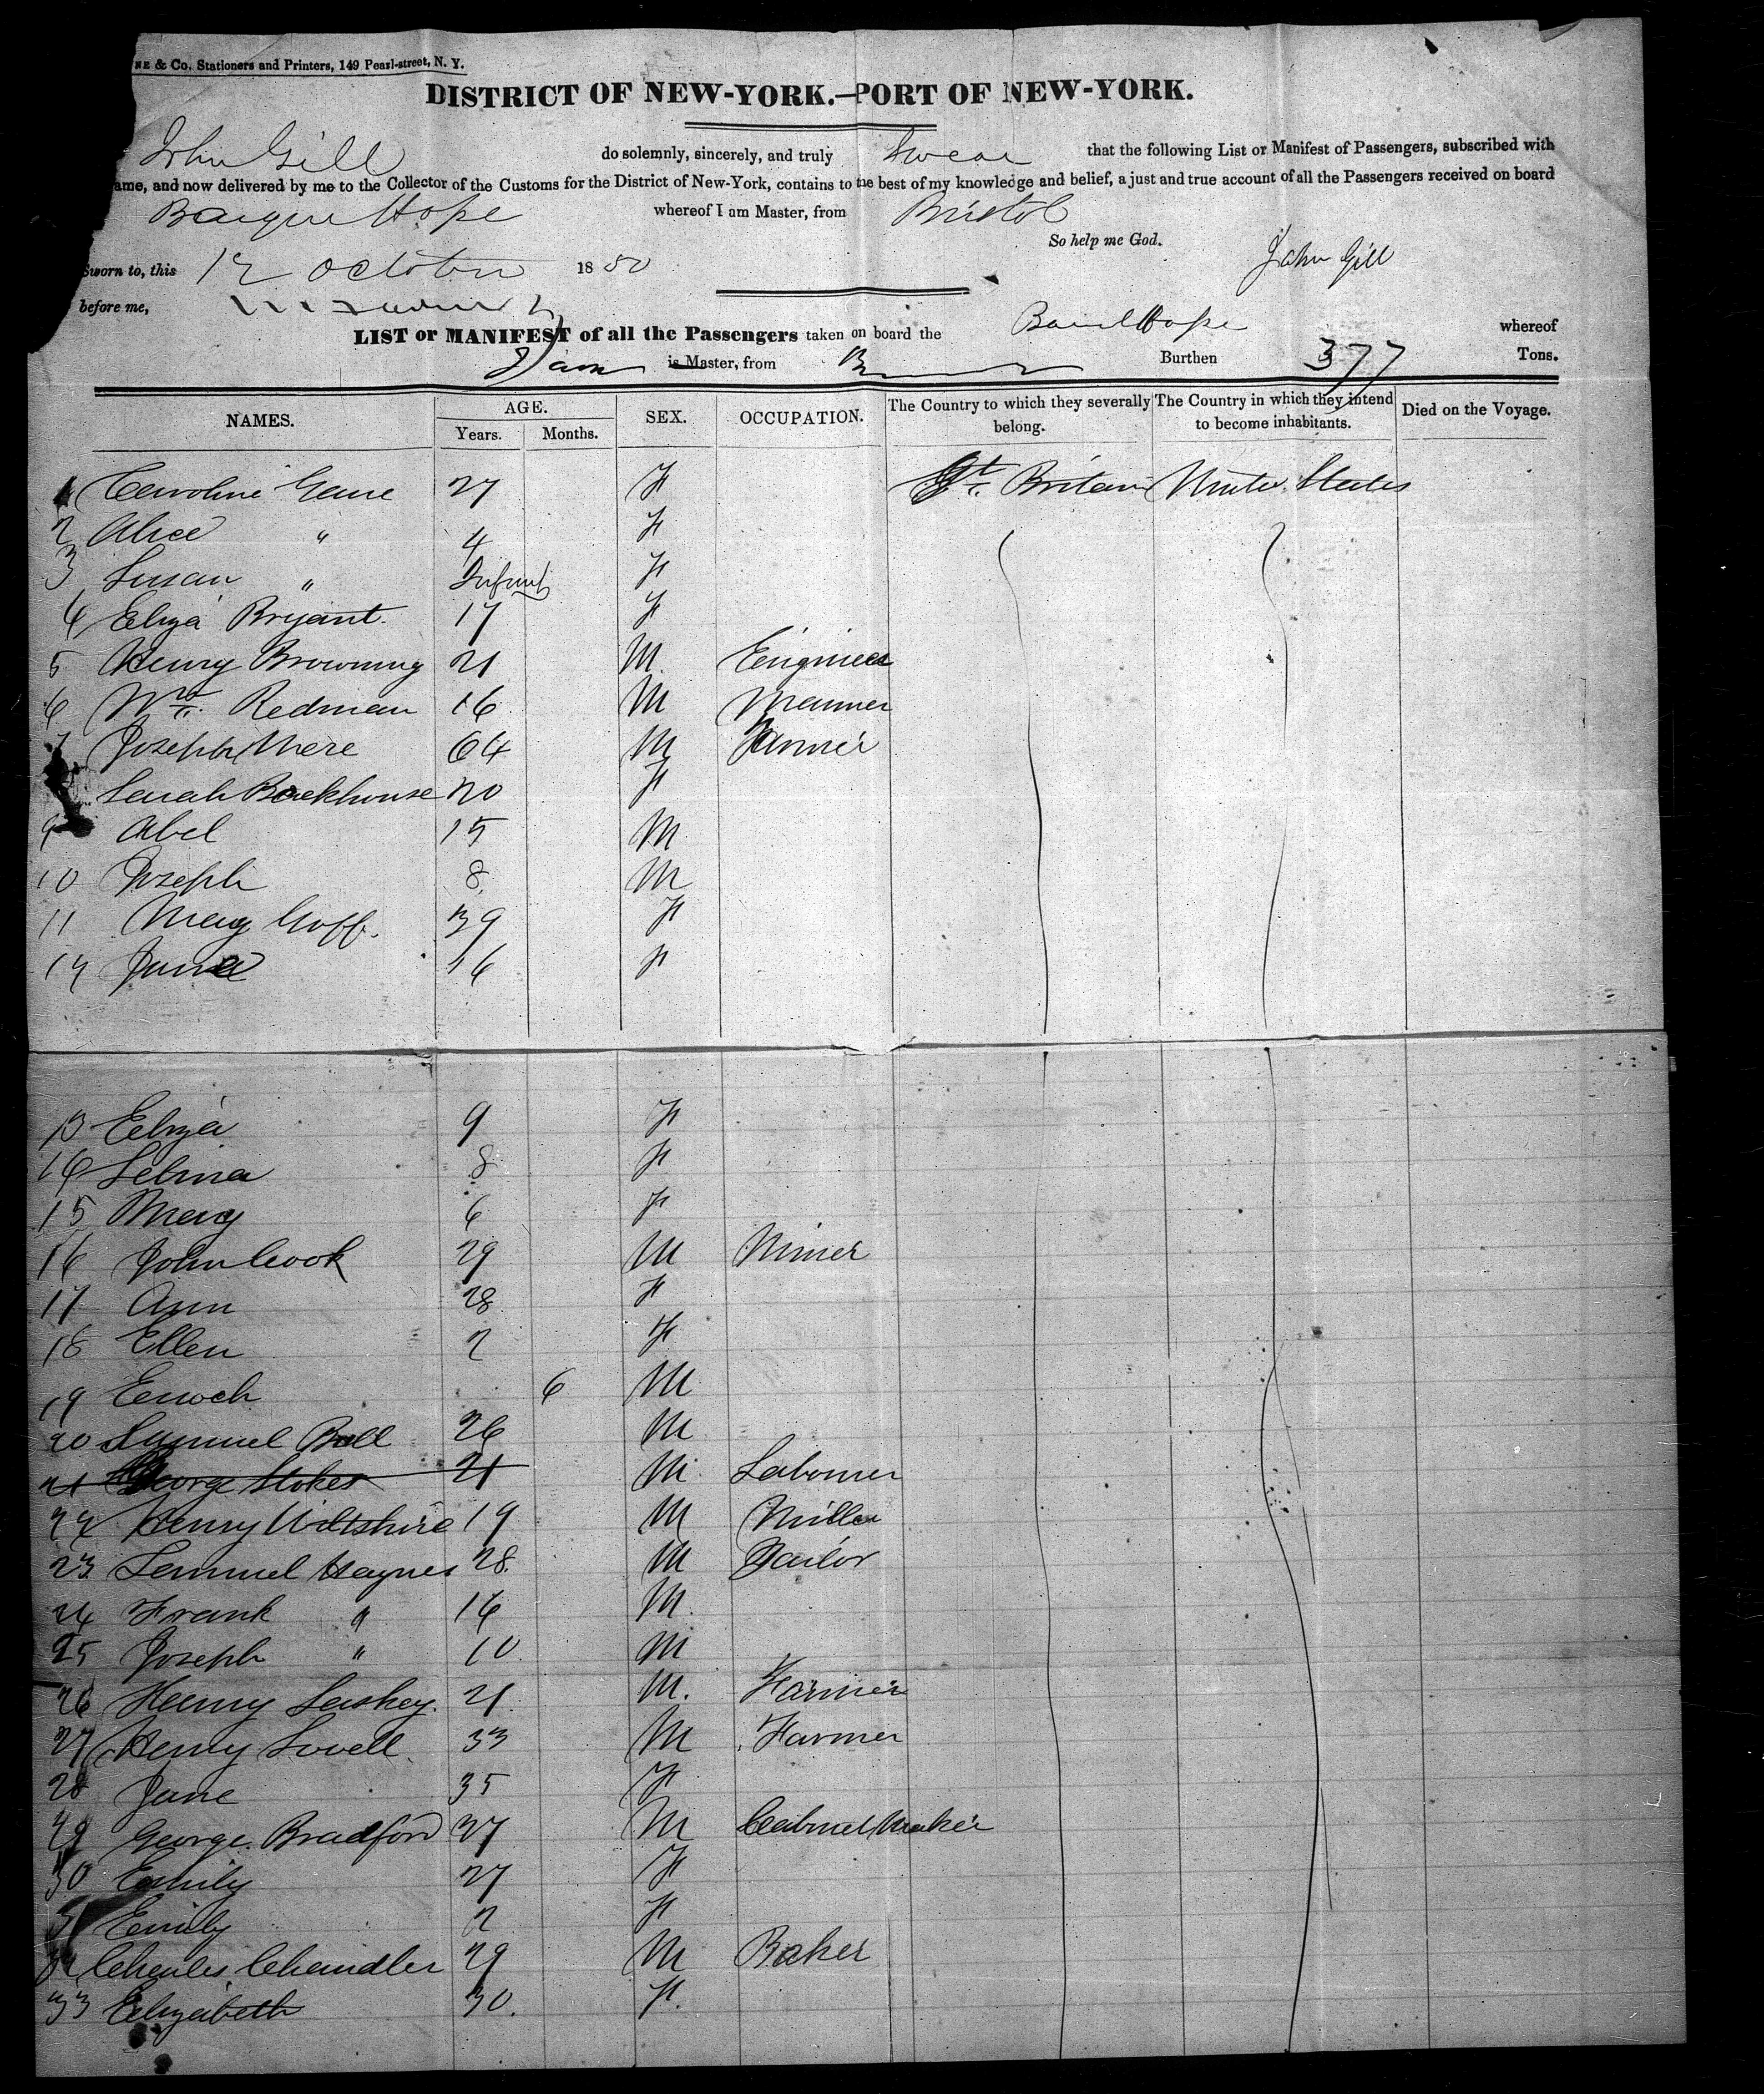 NE & Co. Stationers and Printers, 149 Pearl-street, N. Y.
DISTRICT OF NEW-YORK.—PORT OF NEW-YORK.
John Gill do solemnly, sincerely, and truly Swear that the following List or Manifest of Passengers, subscribed with
ame, and now delivered by me to the Collector of the Customs for the District of New-York, contains to the best of my knowledge and belief, a just and true account of all the Passengers received on board
Barque Hope whereof I am Master, from Bristol
So help me God.
Sworn to, this 12 October 1850 John Gill
before me,
LIST or MANIFEST of all the Passengers taken on board the Barque Hope whereof
is Master, from Burthen 377 Tons.
NAMES. AGE. SEX. OCCUPATION. The Country to which they severally belong. The Country in which they intend to become inhabitants. Died on the Voyage.
Years. Months.
1 Caroline Gane 27 F Gt. Britain United States
2 Alice " 4 F
3 Susan " Infant F
4 Eliza Bryant. 17 F
5 Henry Browning 21 M. Engineer
6 Wm. Redman 16 M Mariner
7 Joseph Mere 64 M Farmer
Sarah Backhouse 20 F
9 Abel 15 M
10 Joseph 8 M
11 Mary Goff. 39 F
12 Jane 16 F
13 Eliza 9 F
14 Selina 8 F
15 Mary 6 F
16 John Cook 29 M Miner
17 Ann 28 F
18 Ellen 2 F
19 Enoch 6 M
20 Samuel Bull 26 M
21 George Stokes 21 M Labourer
22 Henry Wiltshire 19 M Miller
23 Samuel Haynes 28. M Tailor
24 Frank " 16 M.
25 Joseph " 10 M
26 Henry Laskey. 21. M. Farmer
27 Henry Lovell. 33 M Farmer
28 Jane 35 F
29 George Bradford 37 M Cabinet Maker
30 Emily 27 F
31 Emily 2 F
32 Charles Chandler 29 M Baker
33 Elizabeth 30. F.